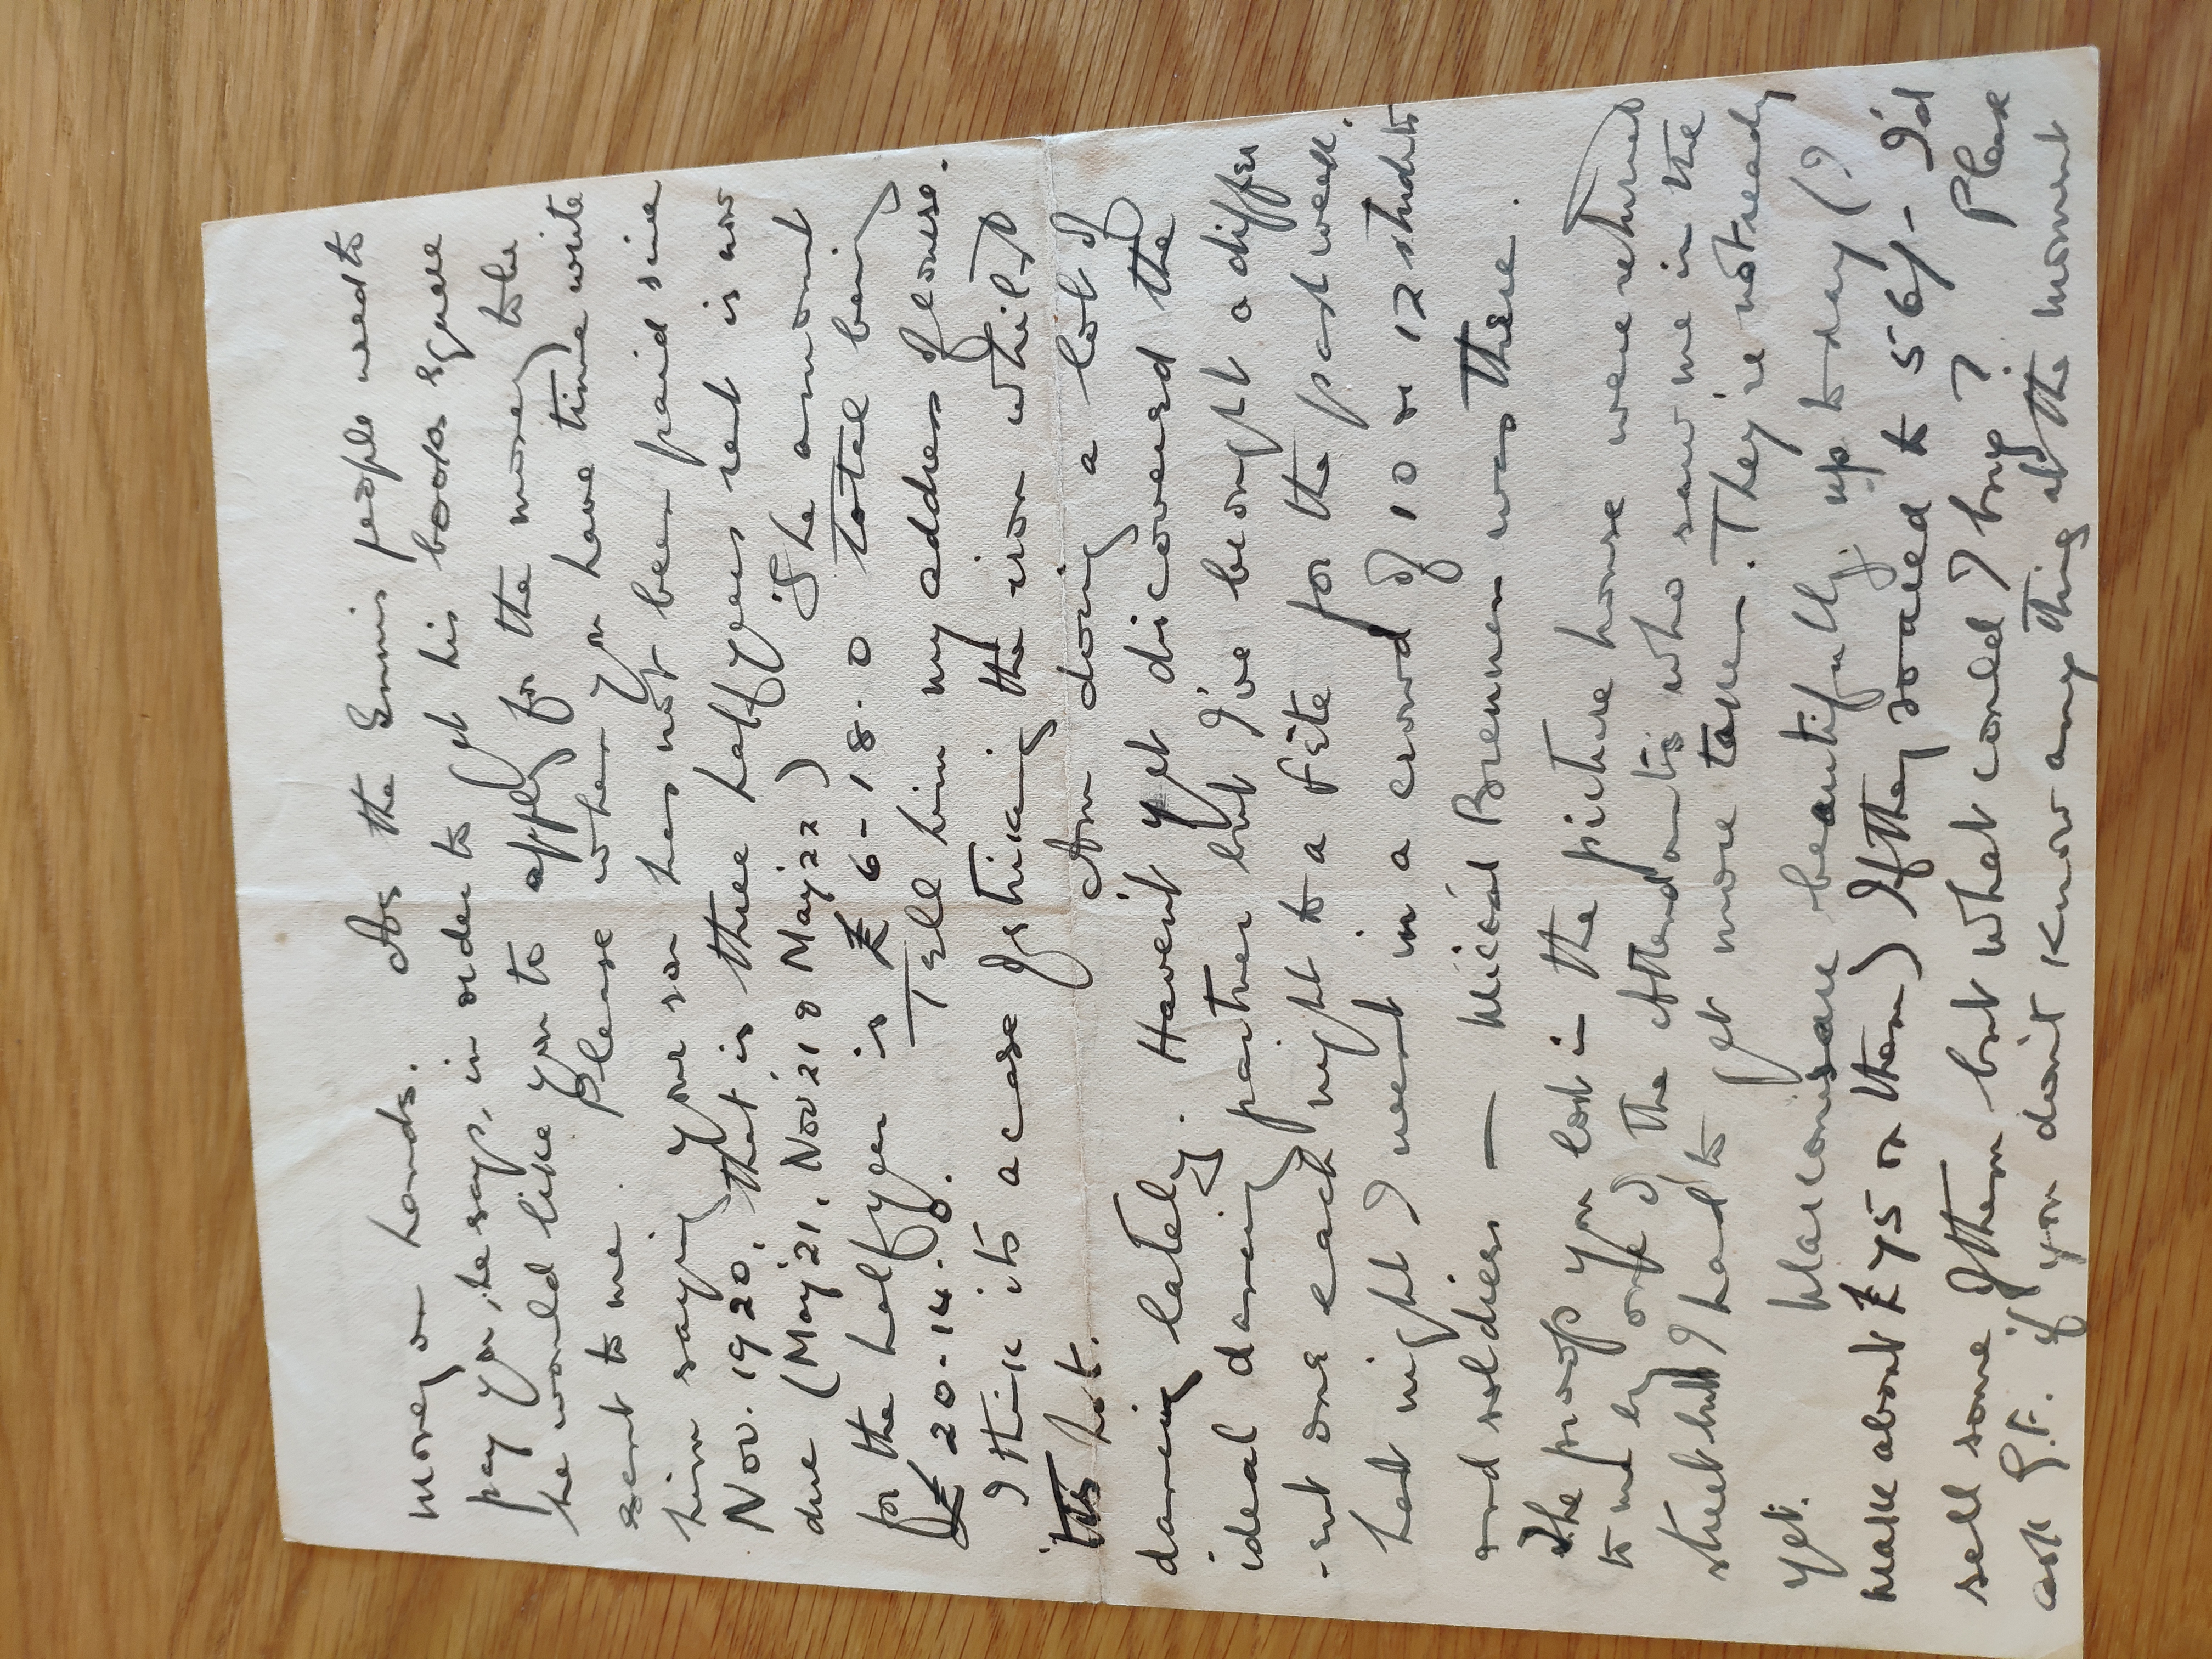 money on hands. As the Ennis people need to
pay you, he says, in order to get his books square
he would like you to apply for the money to be
sent to me. Please when you have time write
him saying your son has not been paid since
Nov. 1920, that is three half years rent is now
due (May '21, Nov '21 & May '22) The amount
for the half year is £6-18-0 total being
£20-14-0. Tell him my address of course.
I think its a case of striking the iron whilst
'tis hot. Am doing a lot of
dancing lately. Haven't yet discovered the
ideal dancing partner but I've brought a differ
-ent one each night to a fête for the past week.
Last night I went in a crowd of 10 or 12 students
and soldiers — Miceál Brennan was there.
The proofs you lost in the picture house were returned
to me by one of the Attendants who saw me in the
street but I had to get more taken. They're not ready
yet. Marconis are beautifully up today (?
make about £75 on them) If they soared to 56/- I'd
sell some of them but what could I buy? Please
ask G.F. if you don't know any thing at the moment